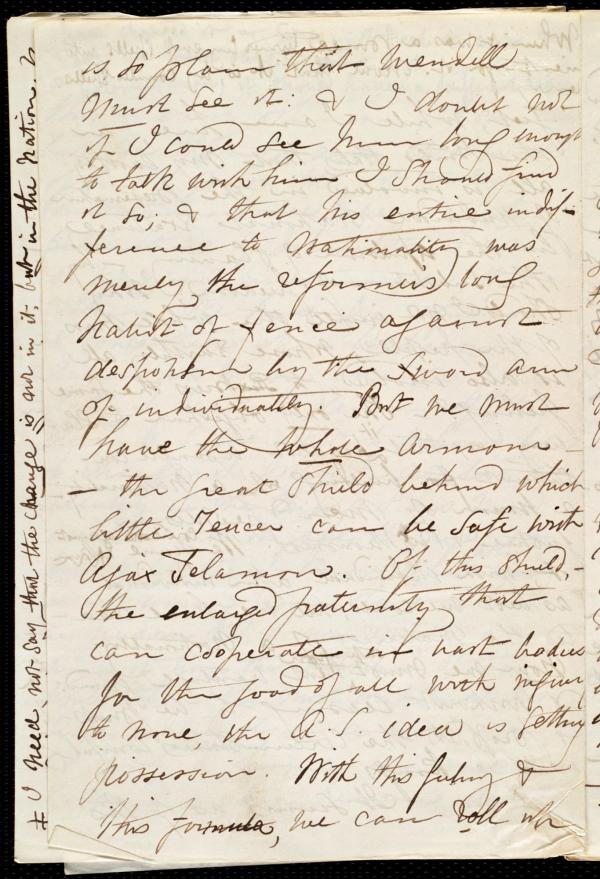 is so plain that Wendell
must see it: & I doubt not
if I could see him long enough
to talk with him I should find
it so; & that his entire indif-
ference to nationality was
merely the reformer's long
habit of fence against
despotism by the sword arm
of individuality. But we must
have the whole armour -
- the great shield behind which
little Teucer can be safe with
Ajax Telamon. Of this shield, -
the enlarged fraternity that
can cooperate in vast bodies
for the good of all with injury
to none, the A. S. idea is getting
possession. With this feeling &
this formula, we can roll
# I need not say that the change is not in it; but in the nation.